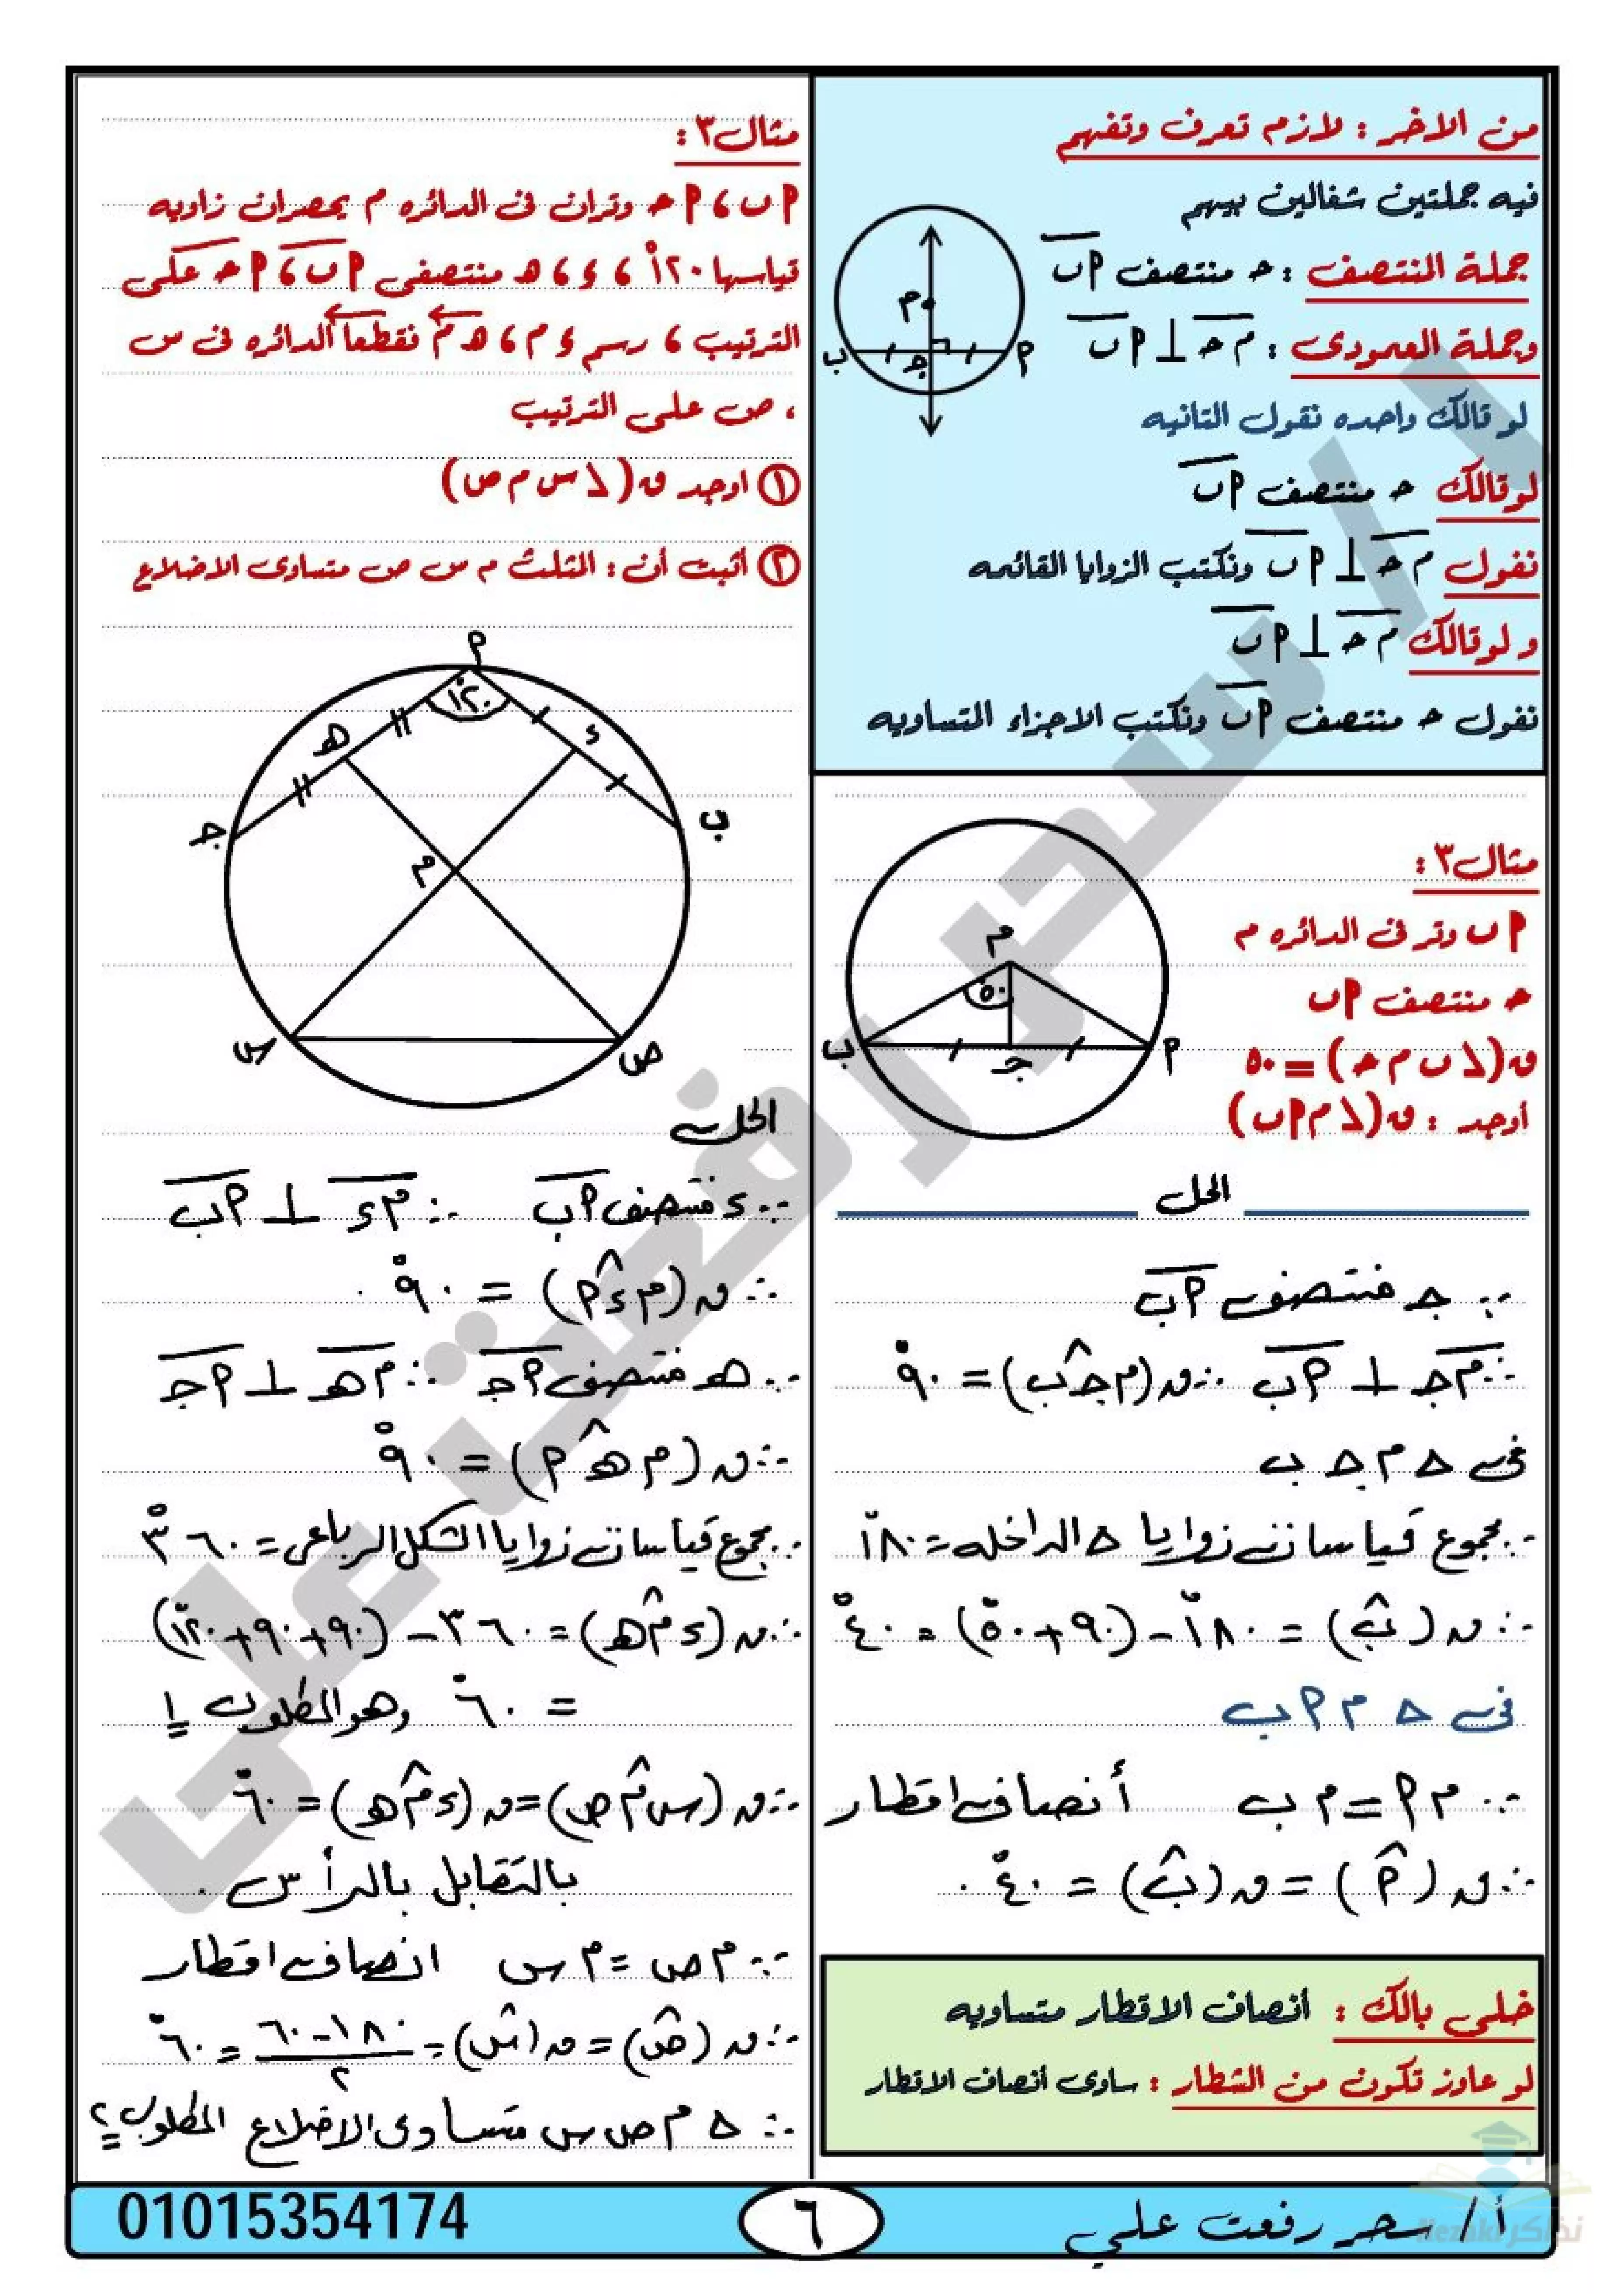 من الاخر : لازم تعرف وتفهم
فيه جملتين شغالين بيهم
جملة المنتصف : حـ منتصف اب
وجملة العمودى : م حـ ⊥ اب
لو قالك واحده نقول التانيه
لو قالك حـ منتصف اب
نقول م حـ ⊥ اب ونكتب الزوايا القائمه
ولو قالك م حـ ⊥ اب
نقول حـ منتصف اب ونكتب الاجزاء المتساويه
م
ب
جـ
ا
مثال٣ :
اب وتر فى الدائره م
حـ منتصف اب
ق(∠ب م حـ) = ٥٠
أوجد : ق(∠م اب)
م
٥٠
ب
جـ
ا
الحل
∵ جـ منتصف اب
∴ م جـ ⊥ اب ∴ ق(م جـ ب) = ٩٠°
فى △ م جـ ب
∵ مجموع قياسات زوايا △ الداخله = ١٨٠°
∴ ق(ب) = ١٨٠° - (٩٠ + ٥٠°) = ٤٠°
فى △ م ا ب
∵ م ا = م ب أنصاف اقطار
∴ ق(ا) = ق(ب) = ٤٠°.
خلى بالك : أنصاف الاقطار متساويه
لو عاوز تكون من الشطار : ساوى أنصاف الاقطار
مثال٣ :
اب ، احـ وتران فى الدائره م يحصران زاويه
قياسها ١٢٠° ، ء ، هـ منتصفى اب ، احـ على
الترتيب ، رسم ء م ، هـ م فقطعا الدائره فى س
، ص على الترتيب
① اوجد ق(∠س م ص)
② أثبت أن : المثلث م س ص متساوى الاضلاع
ا
١٢٠°
هـ
ء
جـ
ب
م
س
ص
الحل
∵ ء منتصف اب ∴ م ء ⊥ اب
∴ ق(م ء ا) = ٩٠°.
∵ هـ منتصف اجـ ∴ م هـ ⊥ اجـ
∴ ق(م هـ ا) = ٩٠°
∵ مجموع قياسات زوايا الشكل الرباعى = ٣٦٠°
∴ ق(ء م هـ) = ٣٦٠ - (٩٠ + ٩٠ + ١٢٠°)
= ٦٠° وهو المطلوب ١
∴ ق(س م ص) = ق(ء م هـ) = ٦٠°
بالتقابل بالرأس.
∵ م ص = م س انصاف اقطار
∴ ق(ص) = ق(س) = ١٨٠ - ٦٠ / ٢ = ٦٠°
∴ △ م ص س متساوى الاضلاع المطلوب ٢
أ / سحر رفعت علي
٦
01015354174
أ / سحر رفعت على
نذاكر Nezakr